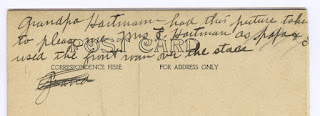 Grandpa Hartmann - had this picture take
to please me Mrs F Hartman as papa & I
used the front room over the stare
POST CARD
CORRESPONDENCE HERE FOR ADDRESS ONLY